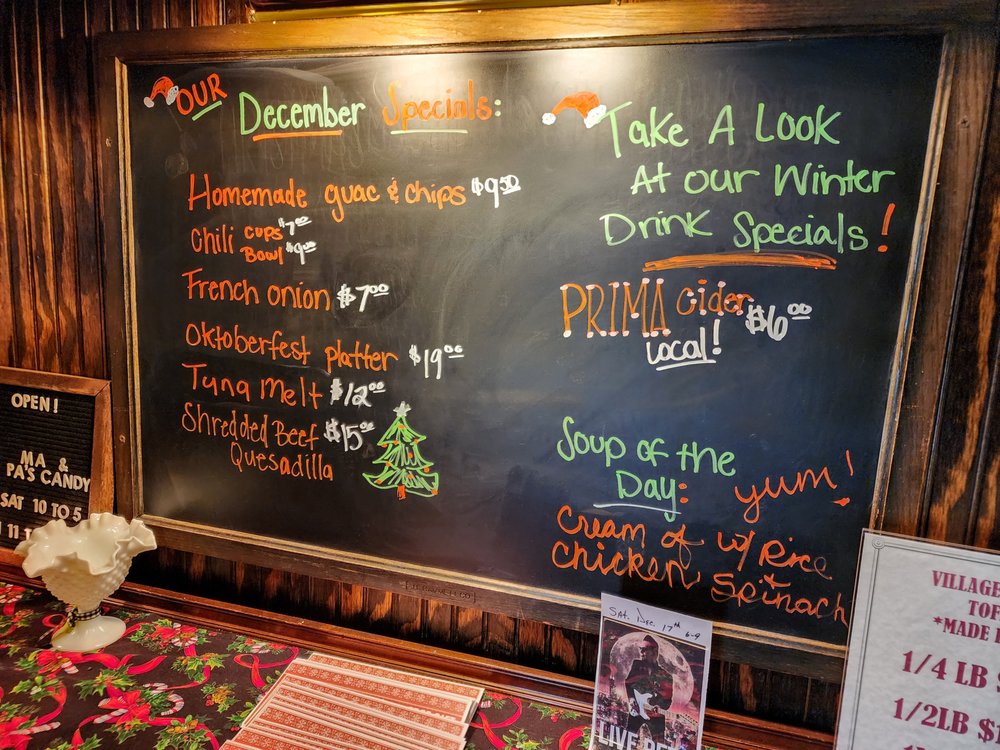 OUR December Specials:
Homemade guac & chips $9.50
Chili cups $7.00
Bowl $9.00
French onion $7.00
Oktoberfest platter $19.00
Tuna Melt $12.00
Shredded Beef $15.00
Quesadilla
Take A Look
At our Winter
Drink Specials!
PRIMA cider $6.00
Local!
Soup of the
Day: yum!
Cream of w/ Rice
Chicken & Spinach
OPEN!
MA &
PA'S CANDY
SAT 10 TO 5
Sat. Dec. 17th 6-9
VILLAGE
*MADE
1/4 LB $
1/2LB $